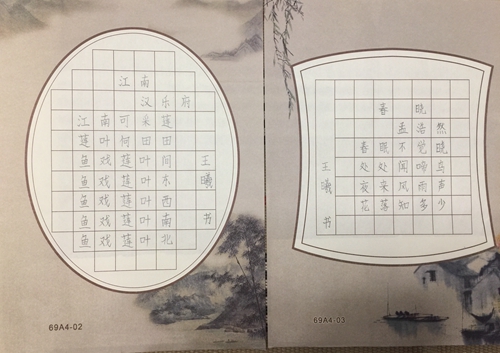 江南
汉乐府
江南可采莲
莲叶何田田
鱼戏莲叶间
鱼戏莲叶东
鱼戏莲叶西
鱼戏莲叶南
鱼戏莲叶北
王曦书
69A4-02
春晓
孟浩然
春眠不觉晓
处处闻啼鸟
夜来风雨声
花落知多少
王曦书
69A4-03